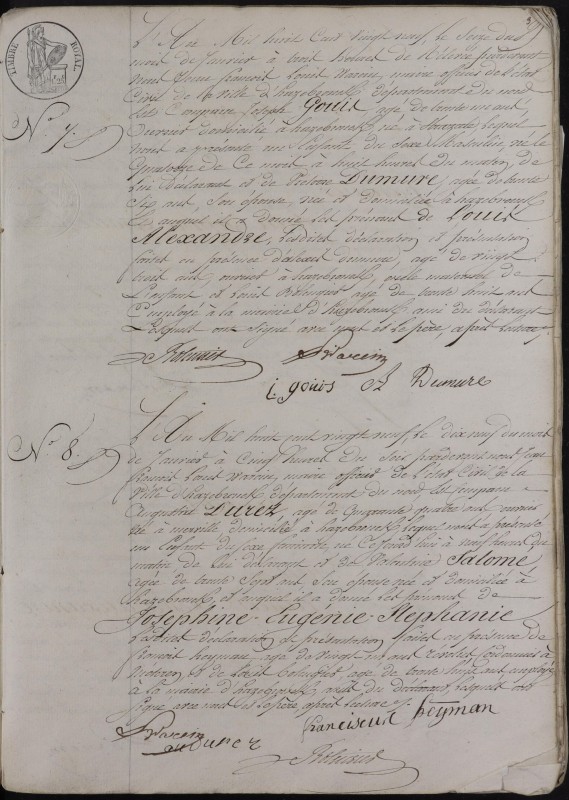 TIMBRE ROYAL
3
L'An Mil huit Cent vingt neuf, le Seize du
mois de Janvier à trois heures de relevée pardevant
nous Jean francois Louis Warein, maire officier de l'état
Civil de la Ville d'hazebrouck Département du nord
Est Comparu Joseph Gouis, agé de trente un ans
domicilié à hazebrouck, né à lequel
nous a présenté un Enfant du Sexe Masculin, né le
quatorze de Ce mois à huit heures du matin, de
lui Déclarant et de Victoire Dumure, agée de trente
Six ans, Son épouse, née et domiciliée à hazebrouck
et auquel il a donné les prénoms de Louis
Alexandre, Lesdites déclaration et présentation
faites en présence d'alexis dumure, agé de vingt
trois ans, à hazebrouck, oncle maternel de
L'enfant et Louis agé de trente huit ans
Employé à la mairie d'hazebrouck, ami du déclarant
Lesquels ont Signé avec nous et le père, après lecture.
N.° 7.
Warein
j. gouis A Dumure
N.° 8.
L'An Mil huit cent vingt neuf, le dix neuf du mois
de Janvier à Cinq heures du Soir pardevant nous Jean
francois Louis Warein, maire officier de l'état Civil de la
Ville d'hazebrouck Département du nord Est Comparu
Augustin Durez, agé de quarante quatre ans
né à merville domicilié à hazebrouck lequel nous a présenté
un Enfant du Sexe féminin, né Cejourd'hui à neuf heures du
matin de lui déclarant et de Salomé,
agée de trente Sept ans, Son épouse née et domiciliée à
hazebrouck, et auquel il a donné les prénoms de
Joséphine-Eugénie-Stéphanie
Lesdites déclaration et présentation faites en présence de
francois heyman agé de vingt ans
et de Louis agé de trente huit ans employé
à la mairie d'hazebrouck, amis du déclarant, lesquels ont
Signé avec nous et le père après lecture.
Warein franciscus heyman
au Durez